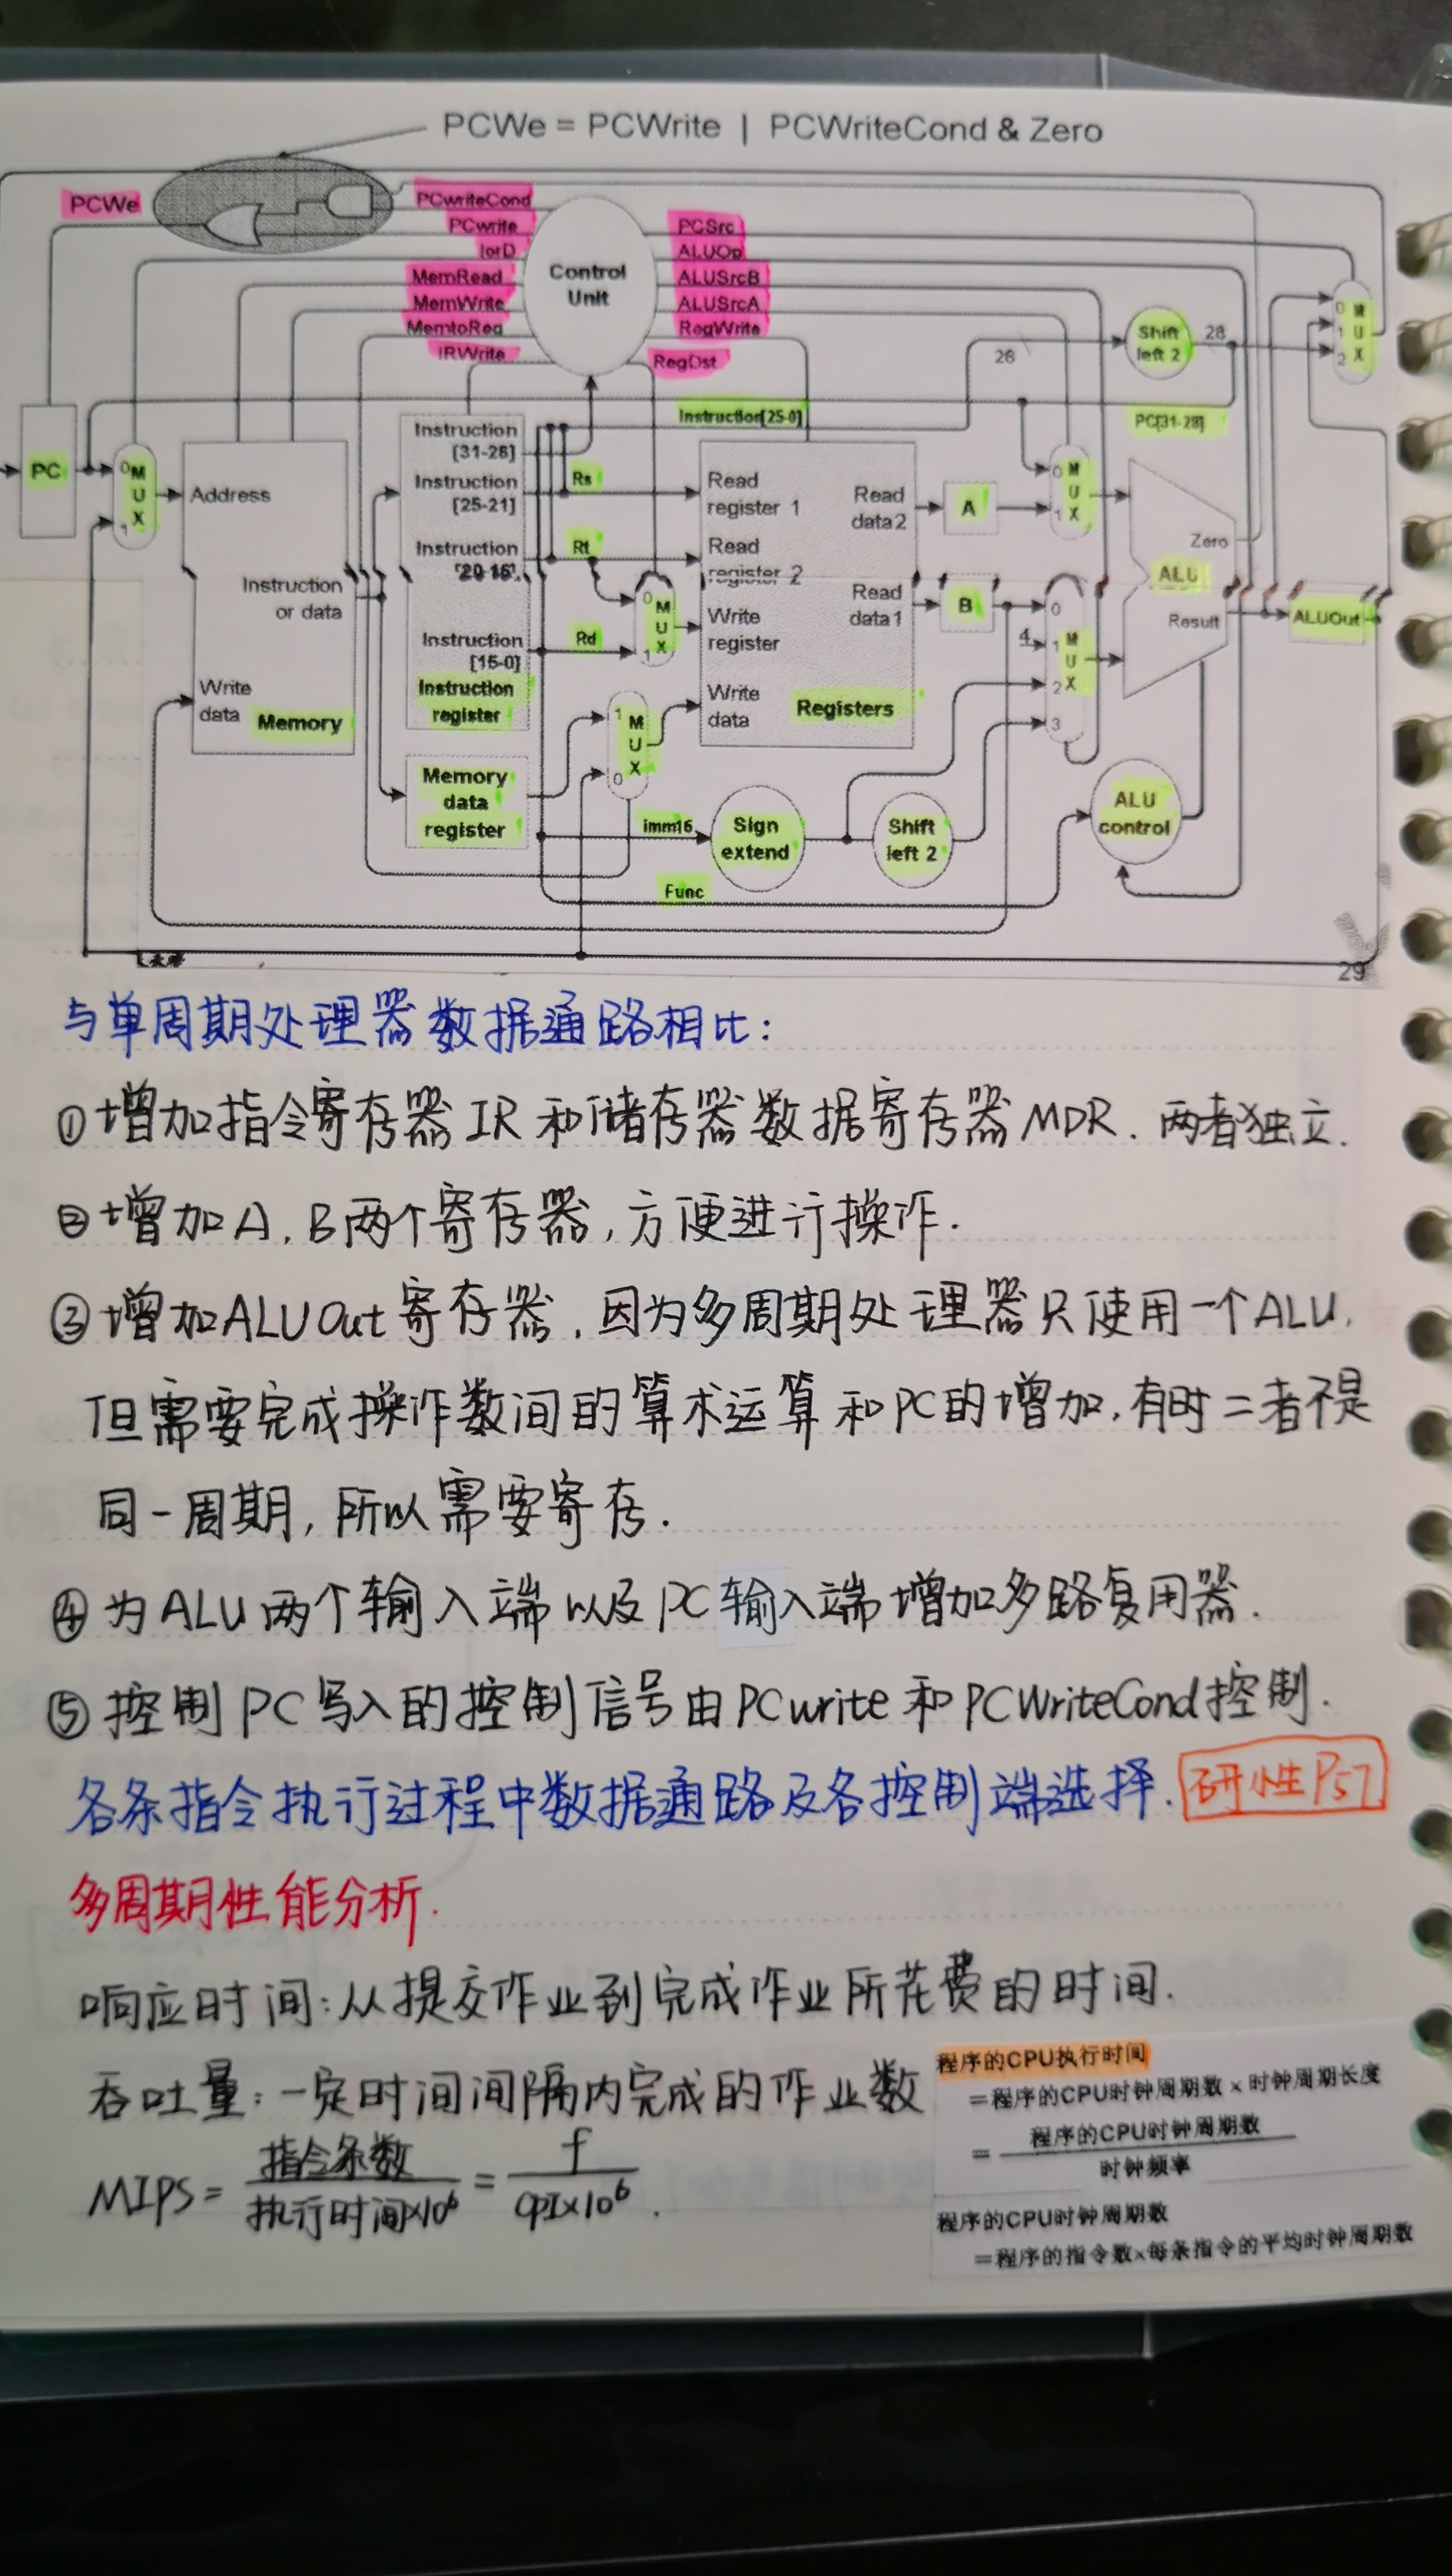 PCWe = PCWrite | PCWriteCond & Zero
PCWe
PCwriteCond
PCwrite
IorD
MemRead
MemWrite
MemtoReg
IRWrite
Control
Unit
PCSrc
ALUOp
ALUSrcB
ALUSrcA
RegWrite
RegDst
26
Shift
left 2
28
0
1
2
M
U
X
Instruction[25-0]
PC[31-28]
PC
0
M
U
X
1
Address
Instruction
or data
Write
data
Memory
Instruction
[31-26]
Instruction
[25-21]
Instruction
Instruction
[15-0]
Instruction
register
Memory
data
register
Rs
Rt
Rd
0
M
U
X
1
1
M
U
X
0
Read
register 1
Read
register 2
Write
register
Write
data
Registers
Read
data2
Read
data1
A
B
0
M
U
X
1
0
4
1
M
U
2
X
3
Zero
ALU
Result
ALUOut
imm16
Sign
extend
Shift
left 2
ALU
control
Func
29
与单周期处理器数据通路相比:
①增加指令寄存器IR和储存器数据寄存器MDR.两者独立.
②增加A.B两个寄存器,方便进行操作.
③增加ALUOut寄存器,因为多周期处理器只使用一个ALU,
但需要完成操作数间的算术运算和PC的增加,有时二者不是
同一周期,所以需要寄存.
④为ALU两个输入端以及PC输入端增加多路复用器.
⑤控制PC写入的控制信号由PCwrite和PCWriteCond控制.
各条指令执行过程中数据通路及各控制端选择.
研小性P57
多周期性能分析.
响应时间:从提交作业到完成作业所花费的时间.
吞吐量:一定时间间隔内完成的作业数
MIPS = 指令条数/执行时间×10⁶ = f/CPI×10⁶.
程序的CPU执行时间
=程序的CPU时钟周期数×时钟周期长度
= 程序的CPU时钟周期数/时钟频率
程序的CPU时钟周期数
=程序的指令数×每条指令的平均时钟周期数